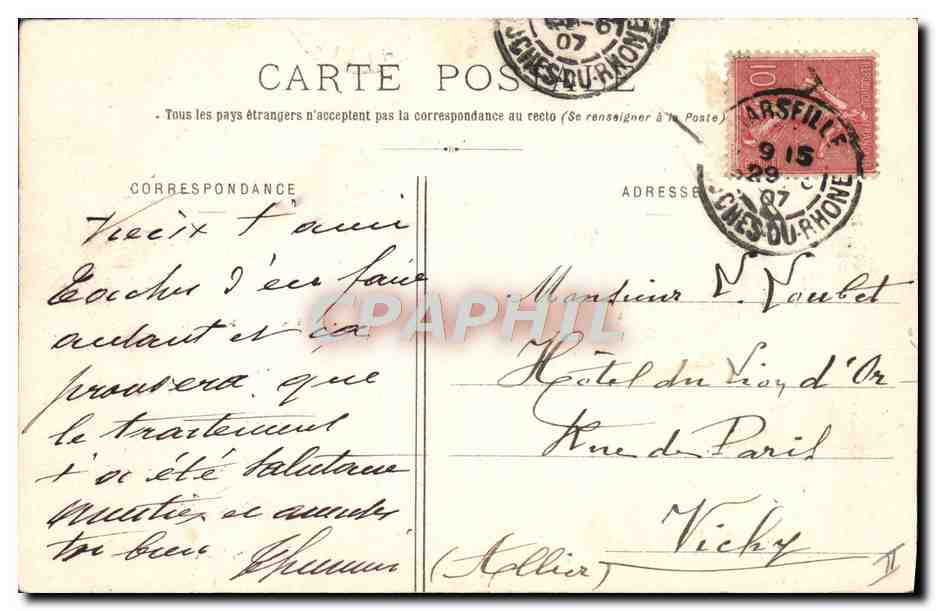 07
BCHES-DU-RHONE
CARTE POSTALE
Tous les pays étrangers n'acceptent pas la correspondance au recto (Se renseigner à la Poste)
10
MARSEILLE
9 15
29
07
BCHES-DU-RHONE
CORRESPONDANCE
ADRESSE
Vieux t'ami
Tâche d'en faire
autant et ça
prouvera que
le traitement
t'a été salutaire
et amuse
toi bien
Monsieur V. Loubet
Hôtel du Lion d'Or
Rue de Paris
Vichy
(Allier)
II
CPAPHIL